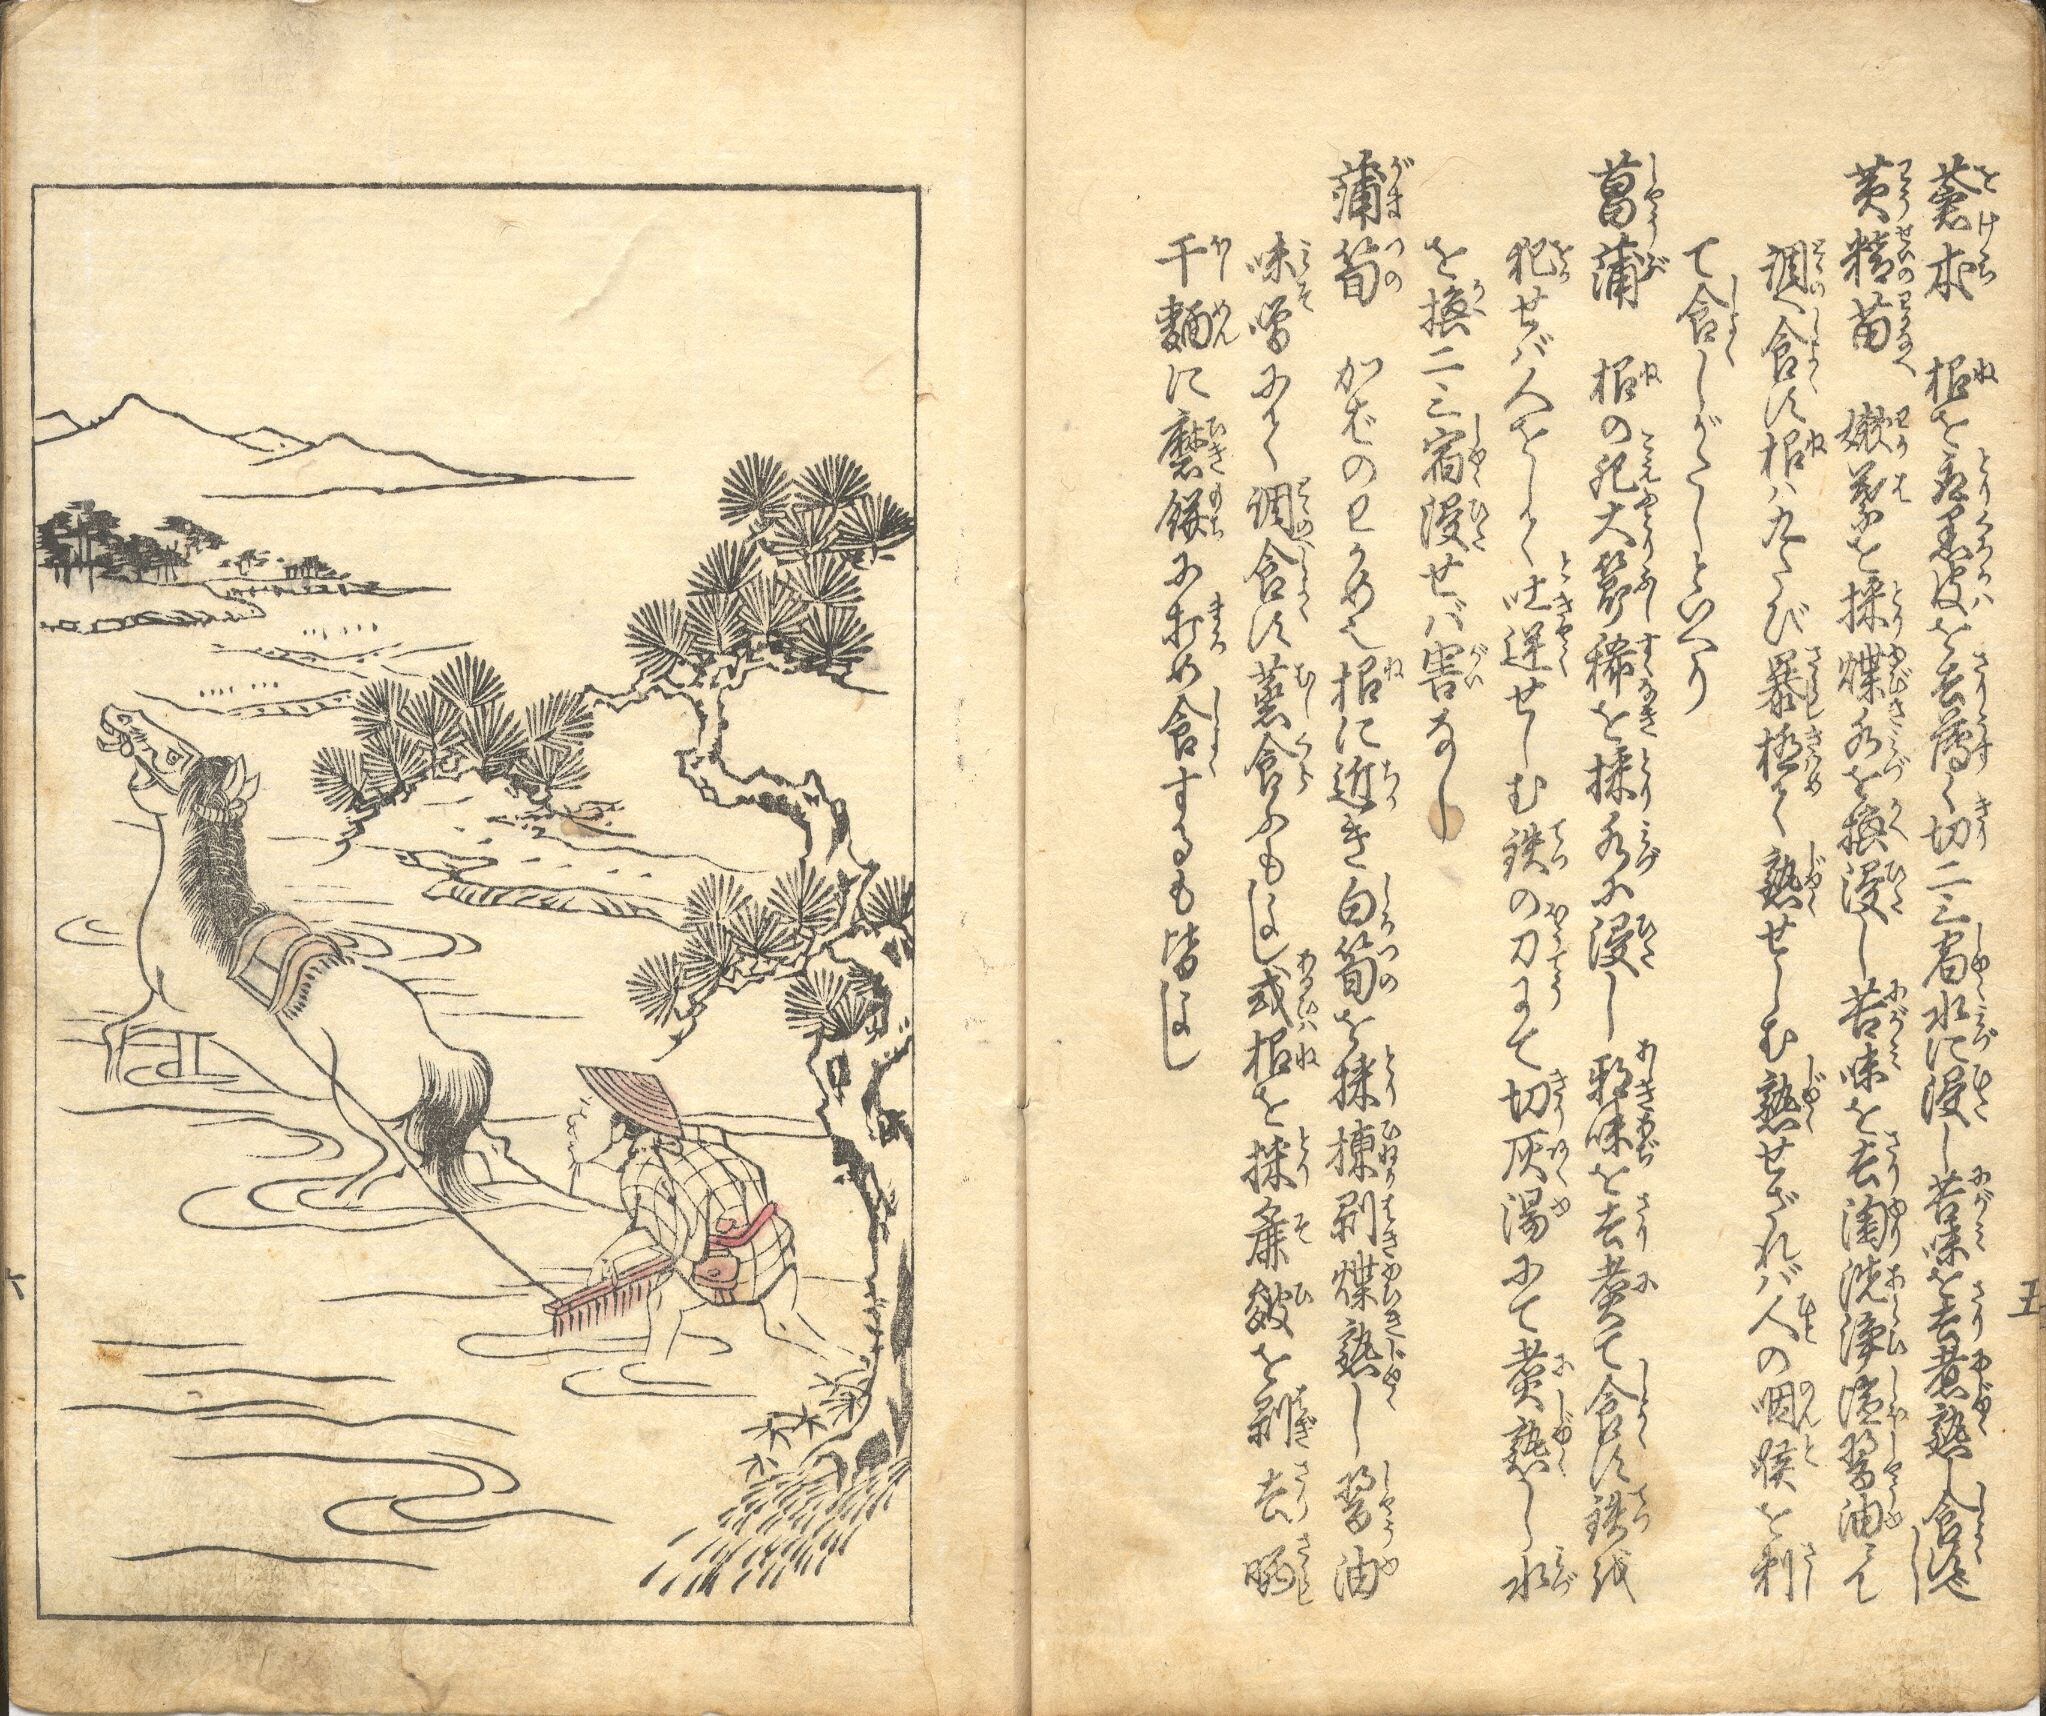 蒼朮　根を取黒皮を去薄く切二三宿水に浸し苦味を去煮熟し食すべし
黄精苗　嫩葉を採煠水を換浸し苦味を去淘洗浄潔醤油にて
調へ食す根ハ九たび暴極て熟せしむ熟せざれバ人の咽喉を刺
て食しがたしといへり
菖蒲　根の肥大節稀を採水に浸し邪味を去煮て食す鉄を
犯せバ人をして吐逆せしむ鉄の刀にて切灰湯にて煮熟し水
を換二三宿浸せバ害なし
蒲筍　かばのわかめ也根に近き白筍を採揀剥煠熟し醤油
味噌にて調食す蒸食ふもよし或根を採麁皴を剥去晒
干麺に磨餅に打め食するも皆よし
五
六